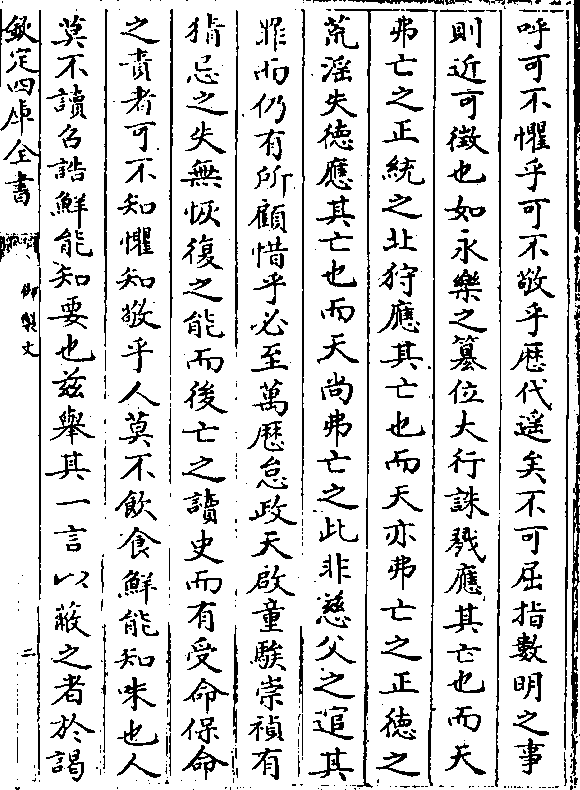 呼可不懼乎可不敬乎歴代遥矣不可屈指數明之事
則近可徵也如永樂之簒位大行誅戮應其亡也而天
弗亡之正統之北狩應其亡也而天亦弗亡之正徳之
荒淫失徳應其亡也而天尚弗亡之此非慈父之逭其
罪而仍有所顧惜乎必至萬厯怠政天啟童騃崇禎有
猜忌之失無恢復之能而後亡之讀史而有受命保命
之責者可不知懼知敬乎人莫不飲食鮮能知味也人
莫不讀召誥鮮能知要也兹舉其一言以蔽之者於謁
欽定四庫全書
御製文
二